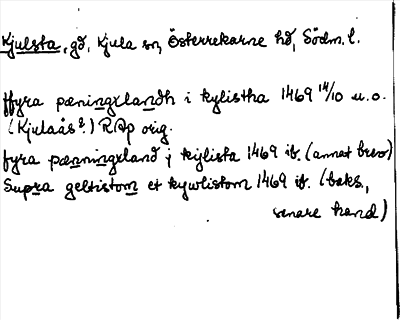 Kjulsta, gd, Kjula sn, Österrekarne hd, Södm. l.
ffyra pæningxlandh i kylistha 1469 14/10 u.o.
(Kjulaås?) RAp orig.
fyra pænningxland j kylista 1469 ib. (annat brev)
Supra geltistom et kywlistom 1469 ib. (baks.,
senare hand)